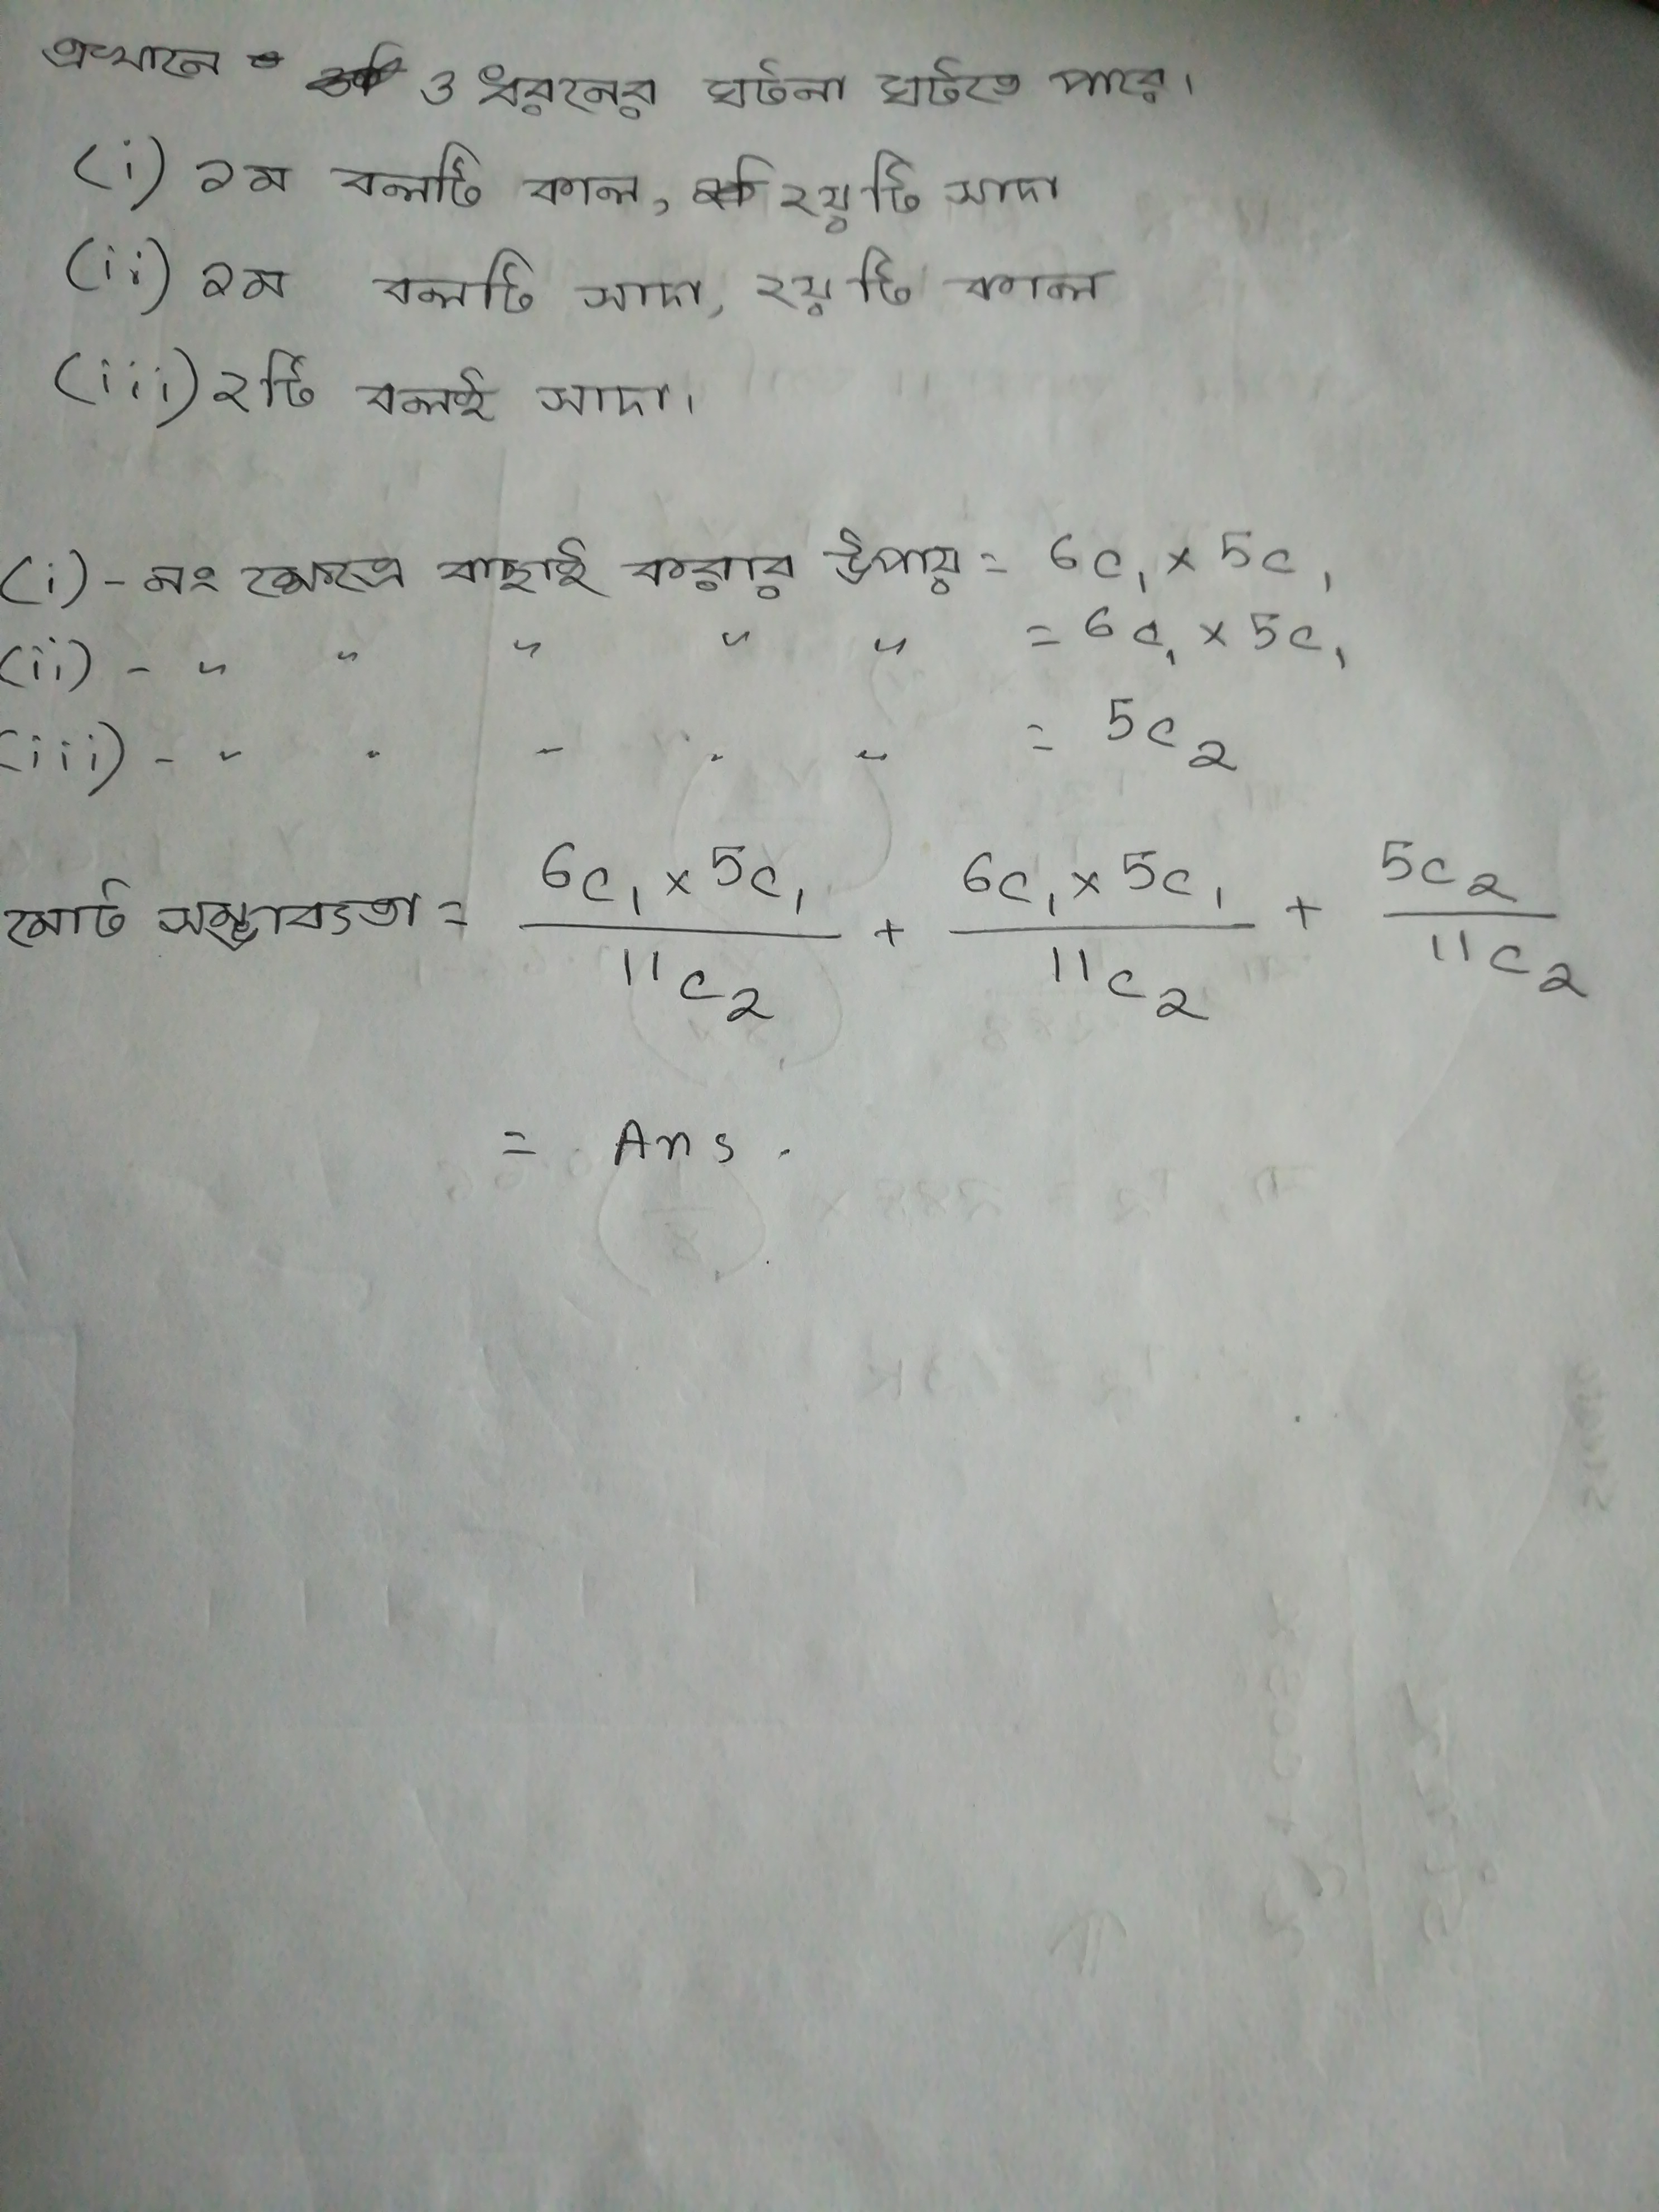 এখানে ৩ ধরনের ঘটনা ঘটতে পারে।
(i) ১ম বলটি কাল, ২য়টি সাদা
(ii) ১ম বলটি সাদা, ২য়টি কাল
(iii) ২টি বলই সাদা।
(i) - নং ক্ষেত্রে বাছাই করার উপায় = 6c₁ × 5c₁
(ii) - " " " " " = 6c₁ × 5c₁
(iii) - " " " " " = 5c₂
মোট সম্ভাব্যতা = (6c₁ × 5c₁)/(11c₂) + (6c₁ × 5c₁)/(11c₂) + (5c₂)/(11c₂)
= Ans.